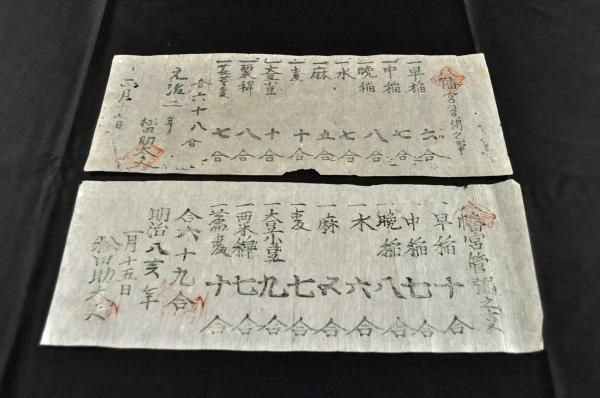 八幡宮管粥之
一早稲 六合
一中稲 七合
一晩稲 八合
一水 七合
一麻 五合
一麦 十合
一大豆 十合
一粟稗 八合
一蕎麦 七合
合六十八合
元治二年
正月十五日
松田助太夫
八幡宮管粥之
一早稲 十合
一中稲 七合
一晩稲 八合
一水 六合
一麻 五合
一麦 七合
一大豆小豆 九合
一粟稗 七合
一蕎麦 十合
合六十九合
明治八亥年
一月十五日
松田助太夫